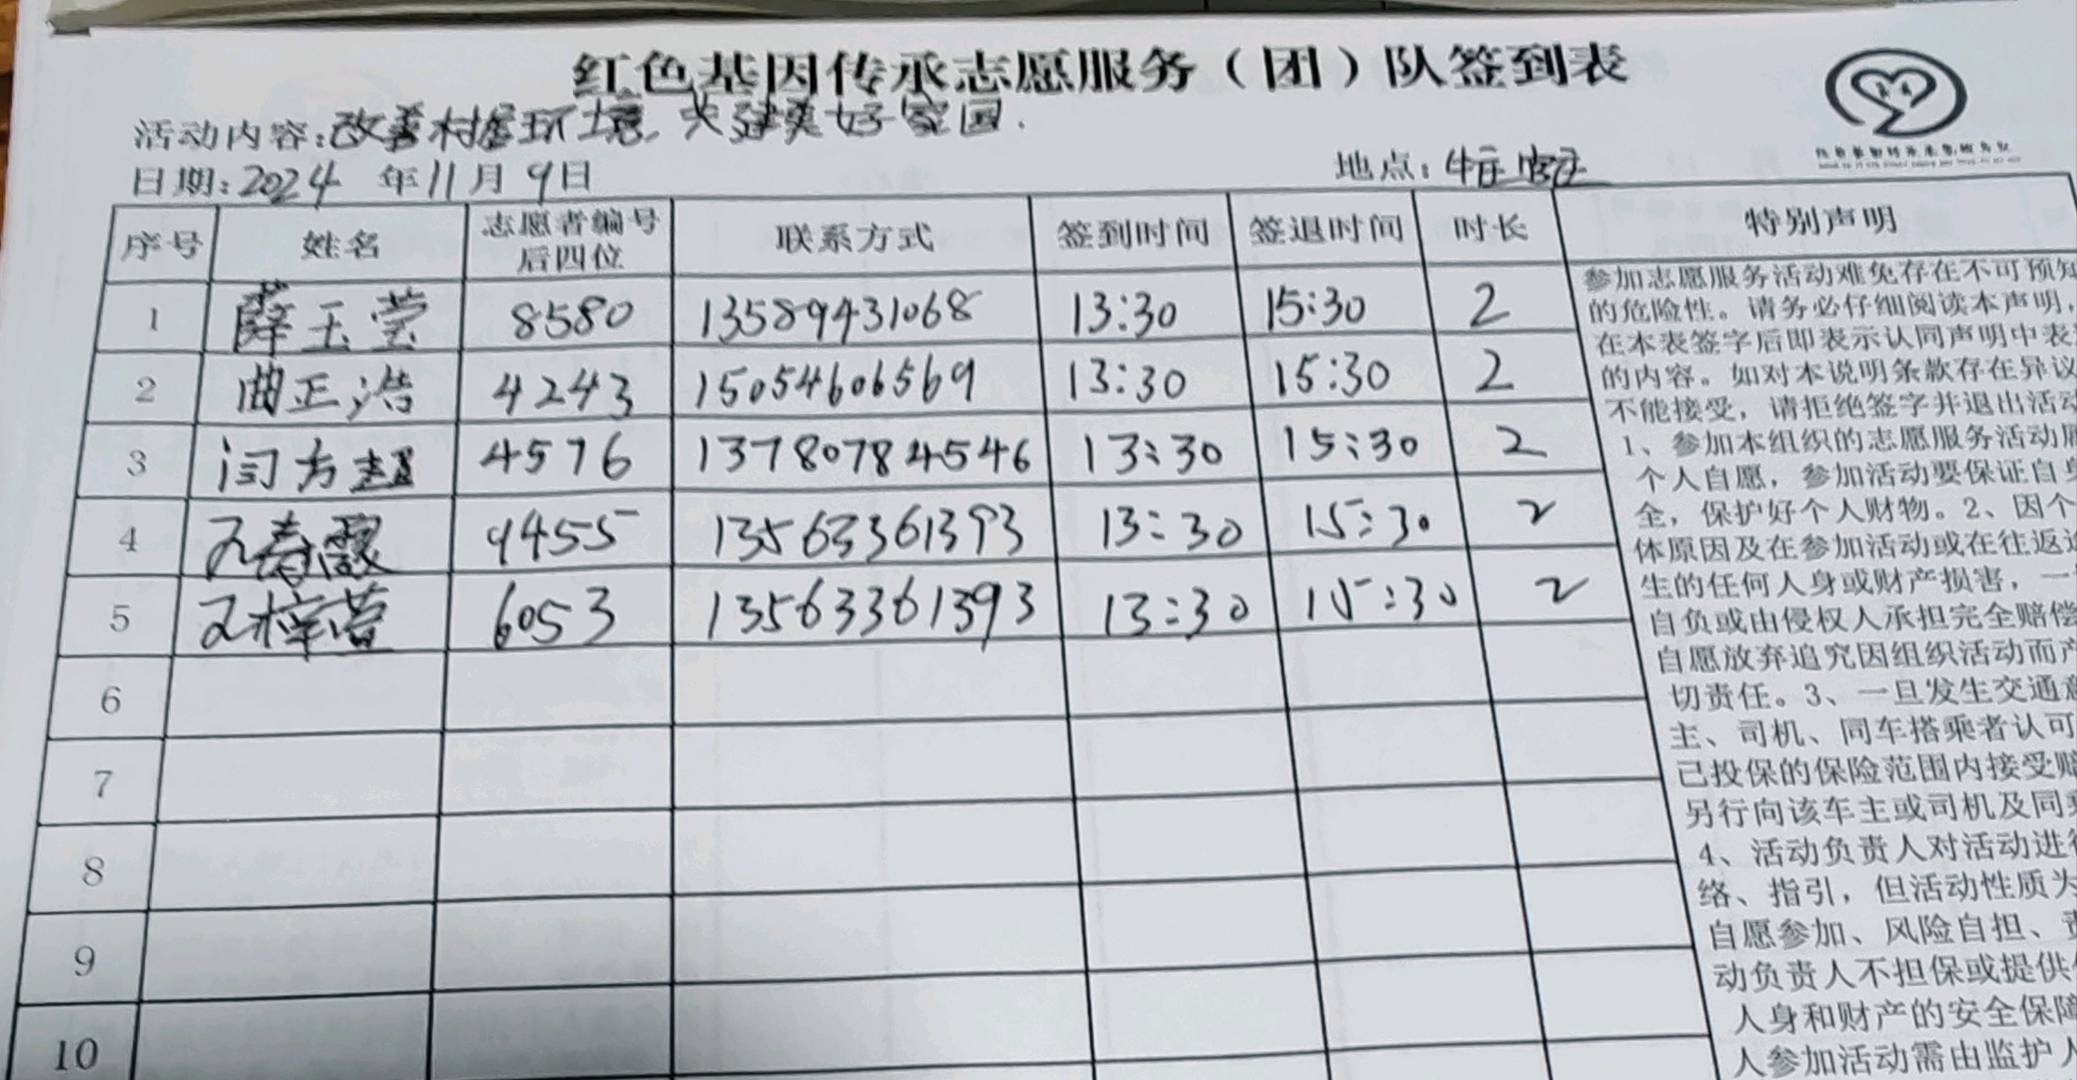 红色基因传承志愿服务（团）队签到表
活动内容:改善村居环境,共建美好家园.
日期:2024 年11月9日
地点:牛庄
序号 姓名 志愿者编号后四位 联系方式 签到时间 签退时间 时长 特别声明
1 薛玉莹 8580 13589431068 13:30 15:30 2
2 曲正浩 4243 15054606569 13:30 15:30 2
3 闫方超 4576 13780784546 13:30 15:30 2
4 王春霞 9455 13563361393 13:30 15:30 2
5 王梓萱 6053 13563361393 13:30 15:30 2
6
7
8
9
10
参加志愿服务活动难免存在不可预知
的危险性。请务必仔细阅读本声明，
在本表签字后即表示认同声明中表
的内容。如对本说明条款存在异议
不能接受，请拒绝签字并退出活动
1、参加本组织的志愿服务活动属
个人自愿，参加活动要保证自身
全，保护好个人财物。2、因个
体原因及在参加活动或在往返途
生的任何人身或财产损害，一
自负或由侵权人承担完全赔偿
自愿放弃追究因组织活动而产
切责任。3、一旦发生交通意
主、司机、同车搭乘者认可
已投保的保险范围内接受赔
另行向该车主或司机及同乘
4、活动负责人对活动进行
络、指引，但活动性质为
自愿参加、风险自担、责
动负责人不担保或提供
人身和财产的安全保障
人参加活动需由监护人